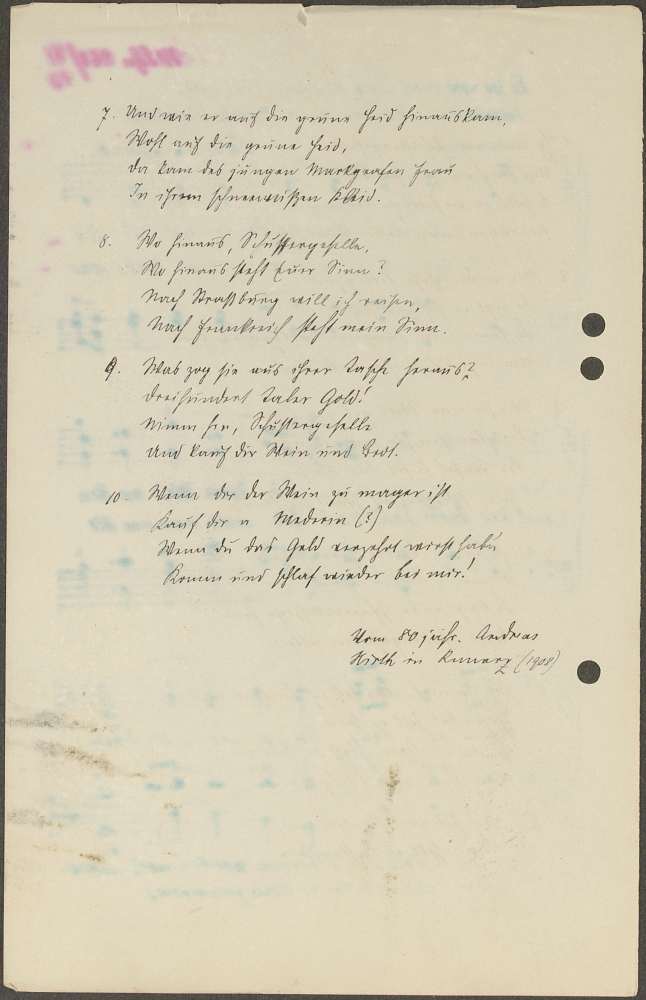 7. Und wie er auf die grüne Heid hinauskam,
Wohl auf die grüne Heid,
Da kam des jungen Markgrafen Frau
In ihrem schneeweißen Kleid.
8. Wo hinaus, Schustergeselle,
Wo hinaus steht Euer Sinn?
Nach Straßburg will ich reisen,
Nach Frankreich steht mein Sinn.
9. Was zog sie aus ihrer Tasche heraus?
Dreihundert Taler Gold!
Nimm hin, Schustergeselle
Und kauf dir Wein und Brot.
10. Wenn dir der Wein zu mager ist
Kauf dir a Mederin (?)
Wenn du das Geld verzehrt wirst haben
Komm und schlaf wieder bei mir!
Vom 80 jähr. Andreas
Hirth in (1908)